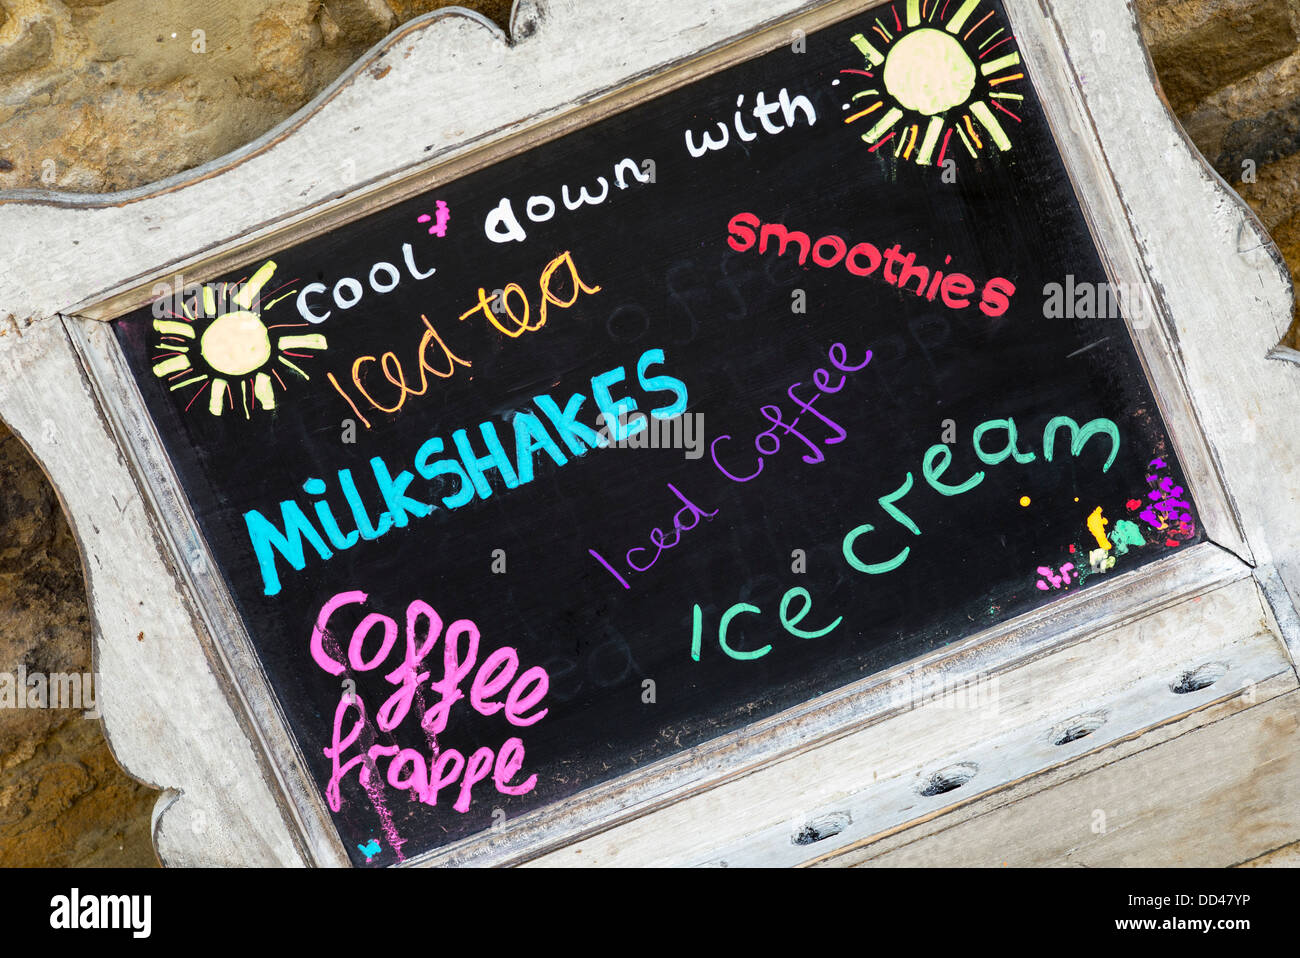 cool down with :
Iced tea
smoothies
MilkSHAKES
Iced Coffee
Ice cream
Coffee
frappe
alamy
Image ID: DD47YP
www.alamy.com